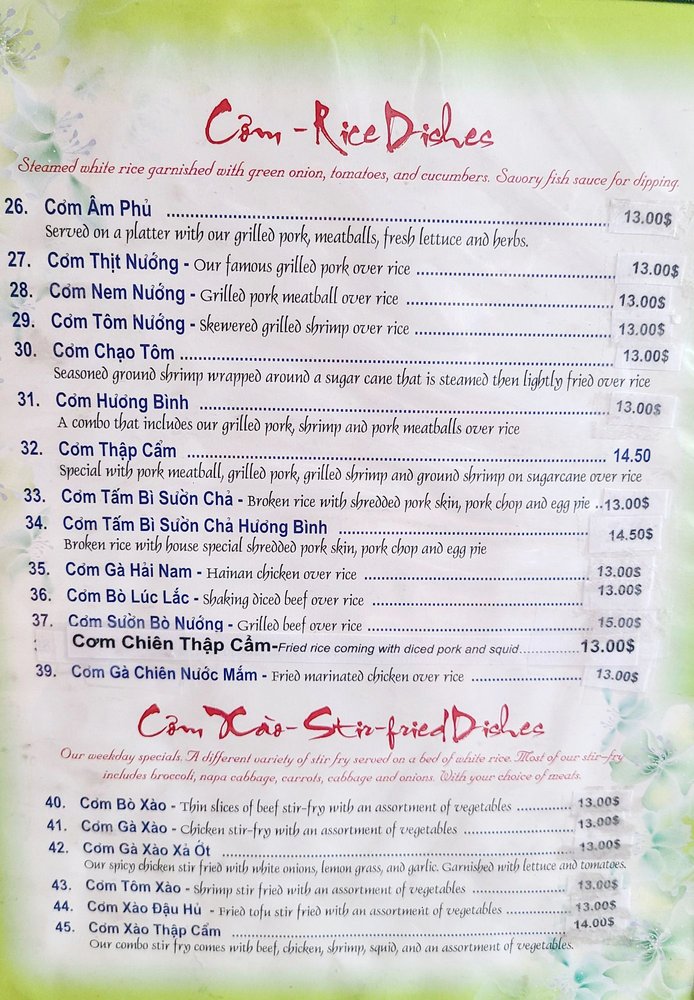 Cơm - Rice Dishes
Steamed white rice garnished with green onion, tomatoes, and cucumbers. Savory fish sauce for dipping.
26. Cơm Âm Phủ ........ 13.00$
Served on a platter with our grilled pork, meatballs, fresh lettuce and herbs.
27. Cơm Thịt Nướng - Our famous grilled pork over rice ........ 13.00$
28. Cơm Nem Nướng - Grilled pork meatball over rice ........ 13.00$
29. Cơm Tôm Nướng - Skewered grilled shrimp over rice ........ 13.00$
30. Cơm Chạo Tôm ........ 13.00$
Seasoned ground shrimp wrapped around a sugar cane that is steamed then lightly fried over rice
31. Cơm Hương Bình ........ 13.00$
A combo that includes our grilled pork, shrimp and pork meatballs over rice
32. Cơm Thập Cẩm ........ 14.50
Special with pork meatball, grilled pork, grilled shrimp and ground shrimp on sugarcane over rice
33. Cơm Tấm Bì Sườn Chả - Broken rice with shredded pork skin, pork chop and egg pie ..13.00$
34. Cơm Tấm Bì Sườn Chả Hương Bình ........ 14.50$
Broken rice with house special shredded pork skin, pork chop and egg pie
35. Cơm Gà Hải Nam - Hainan chicken over rice ........ 13.00$
36. Cơm Bò Lúc Lắc - Shaking diced beef over rice ........ 13.00$
37. Cơm Sườn Bò Nướng - Grilled beef over rice ........ 15.00$
Cơm Chiên Thập Cẩm-Fried rice coming with diced pork and squid........13.00$
39. Cơm Gà Chiên Nước Mắm - Fried marinated chicken over rice ........ 13.00$
Cơm Xào - Stir-fried Dishes
Our weekday specials. A different variety of stir fry served on a bed of white rice. Most of our stir-fry
includes broccoli, napa cabbage, carrots, cabbage and onions. With your choice of meats.
40. Cơm Bò Xào - Thin slices of beef stir-fry with an assortment of vegetables ........ 13.00$
41. Cơm Gà Xào - Chicken stir-fry with an assortment of vegetables ........ 13.00$
42. Cơm Gà Xào Xả Ớt ........ 13.00$
Our spicy chicken stir fried with white onions, lemon grass, and garlic. Garnished with lettuce and tomatoes.
43. Cơm Tôm Xào - Shrimp stir fried with an assortment of vegetables ........ 13.00$
44. Cơm Xào Đậu Hủ - Fried tofu stir fried with an assortment of vegetables ........ 13.00$
45. Cơm Xào Thập Cẩm ........ 14.00$
Our combo stir fry comes with beef, chicken, shrimp, squid, and an assortment of vegetables.